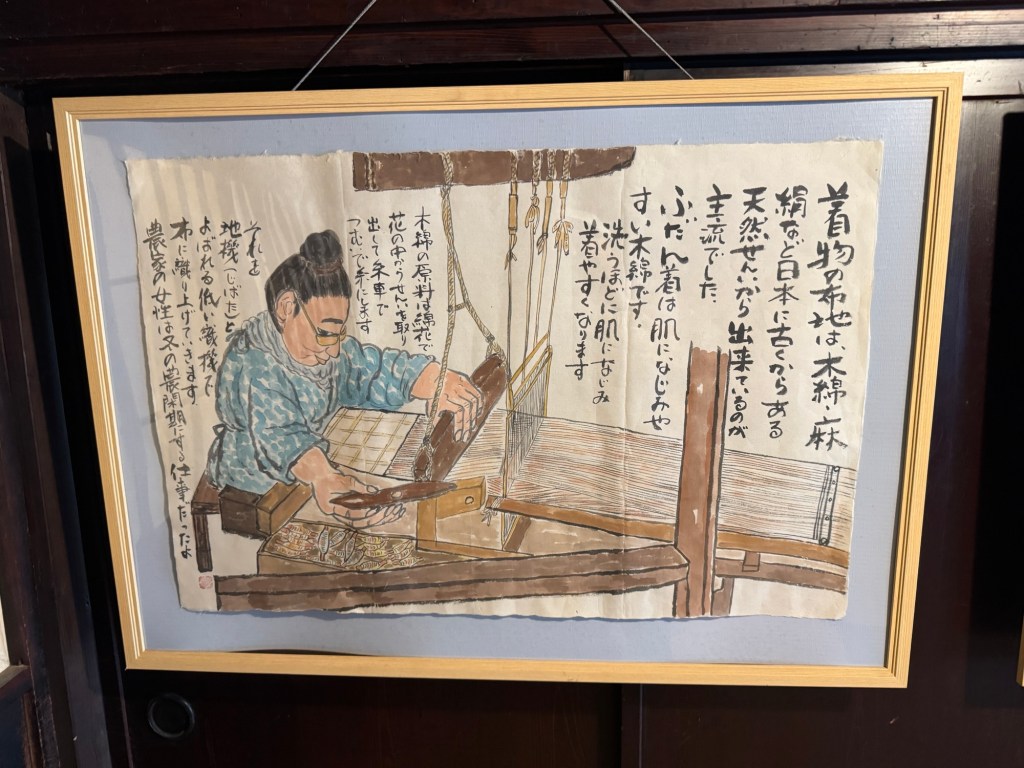 着物の布地は、木綿、麻
絹など日本に古くからある
天然せんいから出来ているのが
主流でした。
ふだん着は肌になじみや
すい木綿です。
洗うほどに肌になじみ
着やすくなります
木綿の原料は綿花で
花の中からせんいを取り
出して糸車で
つむいで糸にします
それを
地機(じばた)と
よばれる低い織機で
布に織り上げていきます
農家の女性は冬の農閑期にする仕事だったよ